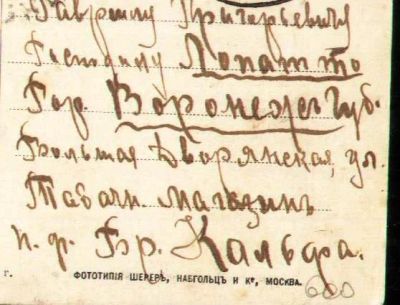 Гавриилу Григорьевичу
Господину Лопатто
Гор. Воронежъ Губ.
Большая Дворянская, ул.
Табачн. магазинъ
п. ф. Бр. Кальфа.
г. ФОТОТИПІЯ ШЕРЕРЪ, НАБГОЛЬЦЪ И Кº, МОСКВА.
600